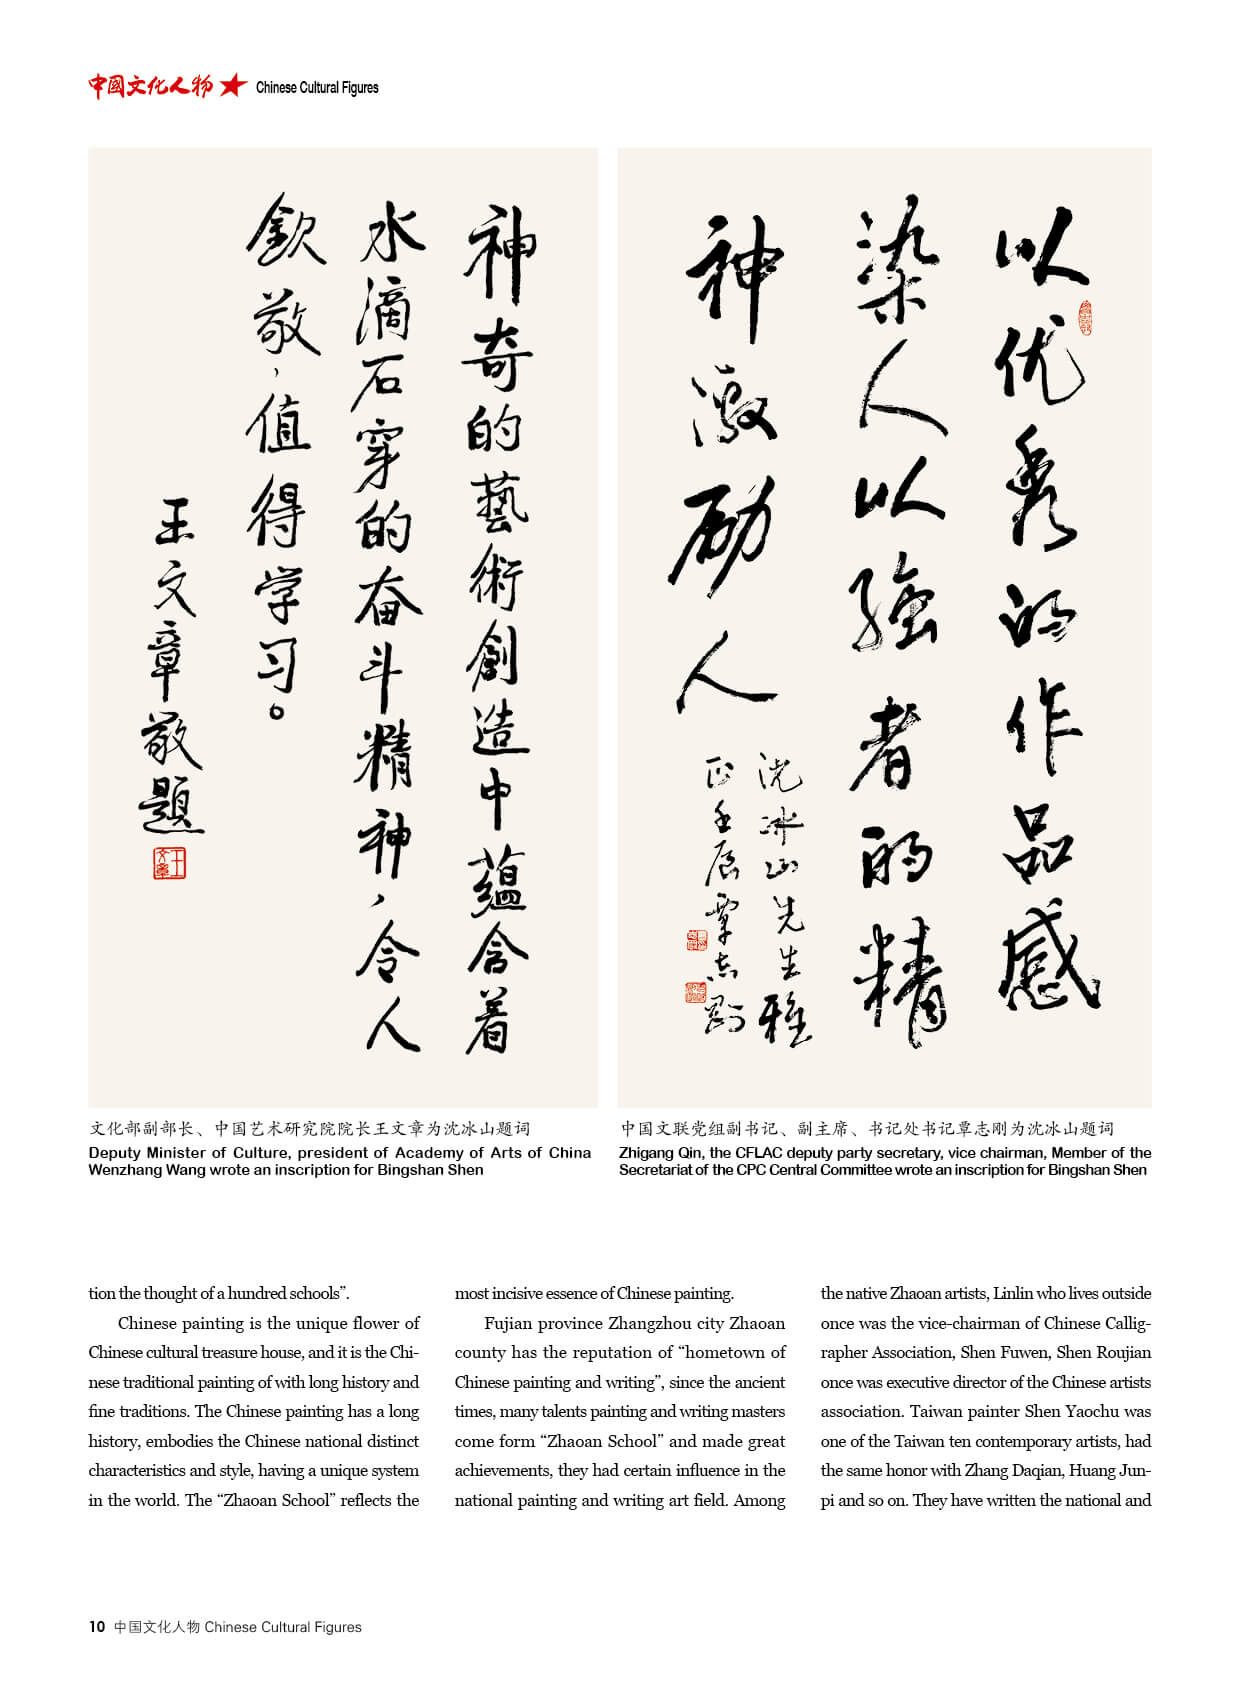 中國文化人物 Chinese Cultural Figures
神奇的藝術創造中蘊含着
水滴石穿的奋斗精神，令人
欽敬，值得学习。
王文章敬題
王文章
以优秀的作品感
染人以强者的精
神激励人
沈冰山先生雅
正壬辰覃志刚
文化部副部长、中国艺术研究院院长王文章为沈冰山题词
Deputy Minister of Culture, president of Academy of Arts of China
Wenzhang Wang wrote an inscription for Bingshan Shen
中国文联党组副书记、副主席、书记处书记覃志刚为沈冰山题词
Zhigang Qin, the CFLAC deputy party secretary, vice chairman, Member of the
Secretariat of the CPC Central Committee wrote an inscription for Bingshan Shen
tion the thought of a hundred schools”.
Chinese painting is the unique flower of
Chinese cultural treasure house, and it is the Chi-
nese traditional painting of with long history and
fine traditions. The Chinese painting has a long
history, embodies the Chinese national distinct
characteristics and style, having a unique system
in the world. The “Zhaoan School” reflects the
most incisive essence of Chinese painting.
Fujian province Zhangzhou city Zhaoan
county has the reputation of “hometown of
Chinese painting and writing”, since the ancient
times, many talents painting and writing masters
come form “Zhaoan School” and made great
achievements, they had certain influence in the
national painting and writing art field. Among
the native Zhaoan artists, Linlin who lives outside
once was the vice-chairman of Chinese Callig-
rapher Association, Shen Fuwen, Shen Roujian
once was executive director of the Chinese artists
association. Taiwan painter Shen Yaochu was
one of the Taiwan ten contemporary artists, had
the same honor with Zhang Daqian, Huang Jun-
pi and so on. They have written the national and
10 中国文化人物 Chinese Cultural Figures